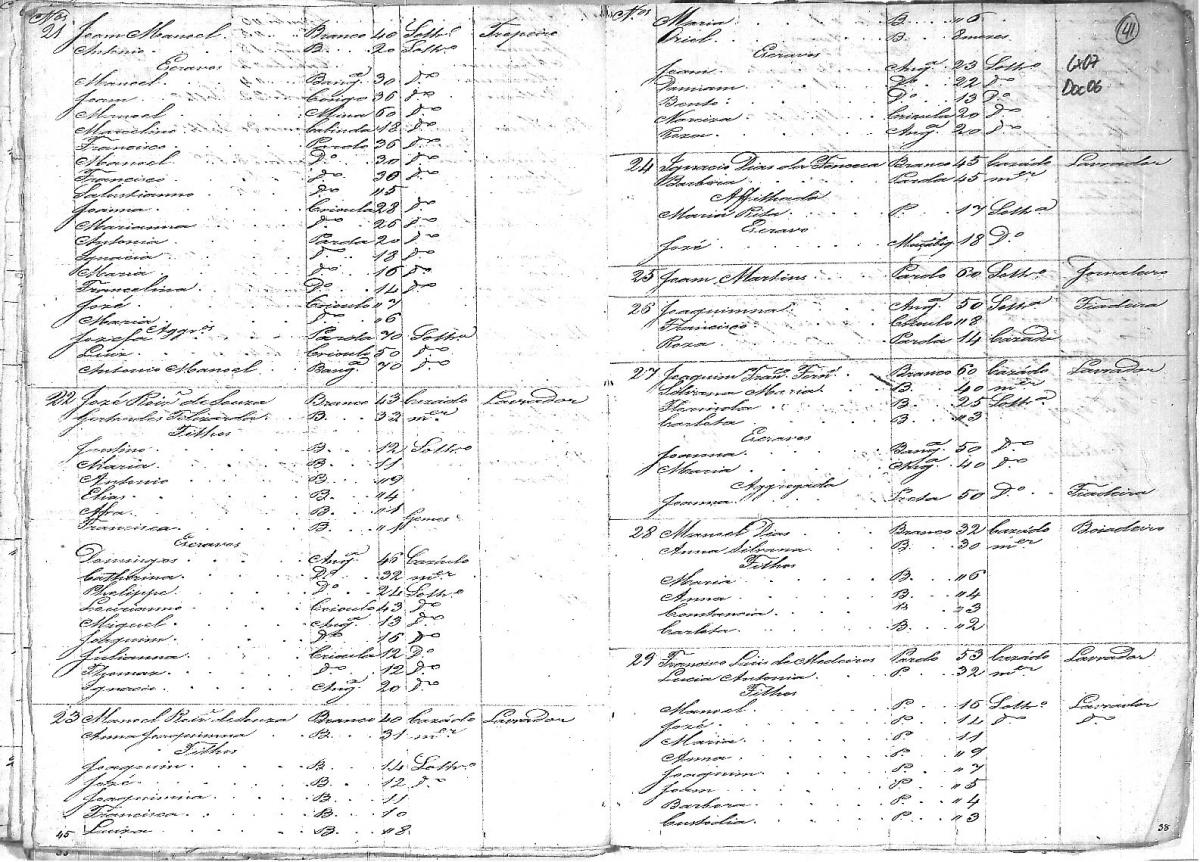 Nos
21 Joam Manoel Branco 40 Solthº Tropeiro
Antonio B. 20 Solthº
Escravos
Manoel Bangª 30 Dº
Joam Congo 36 Dº
Manoel Mina 60 Dº
Marcelino Cabinda 18 Dº
Francisco Pardo 36 Dº
Manoel Dº 30 Dº
Francisco Dº 30 Dº
Salustianno Dº "5
Joanna Crioula 28 Dº
Marianna Dº 26 Dº
Antonia Parda 20 Dº
Ignacia Dº 18 Dº
Maria Dº 16 Dº
Francelina Dº 14 Dº
José Crioulo "7
Maria Dº "6
Jozefa Aggrºs Parda 70 Solthª
Luiz Crioulo 50 Dº
Antonio Manoel Bangª 70 Dº
22 Jozé Roiz' de Souza Branco 43 Cazado Lavrador
Gertrudes Felizarda B. 32 mer
Filhos
Justino B. 12 Solthº
Maria B. 11
Antonio B. "9
Elias B. "4
Anna B. "1
Francisca B. "1 Gemes
Escravos
Domingos Angª 46 Cazado
Catharina Dº 32 mer
Phelippe Dº 24 Solthº
Leurianno Crioulo 43 Dº
Miguel Angª 13 Dº
Joaquim Dº 16 Dº
Julianna Crioula 12 Dº
Thomaz Dº 12 Dº
Ignacio Angª 20 Dº
23 Manoel Roiz' de Souza Branco 40 Cazado Lavrador
Anna Joaquinna B. 31 mer
Filhos
Joaquim B. 14 Solthº
José B. 12 Dº
Joaquinna B. 11
Francisca B. 10
Luiza B. "8
45
Nos
Maria B. "6
Oriel B. 8 mezes
Escravos
Joam Angª 23 Solthº
Damiam Dº 22 Dº
Bento Dº 13 Dº
Nariza Crioula 20 Dº
Roza Angª 20 Dº
41
Cx07
Doc06
24 Ignacio Dias da Fonseca Branco 45 Cazado Lavrador
Barbora Parda 45 mer
Affilhada
Maria Rita P. 17 Solthª
Escravo
José 18 Dº
25 Joam Martins Pardo 60 Solthº Jornaleiro
26 Joaquimna Angª 50 Solthª Fiadeira
Francisco Crioulo "8
Roza Parda 14 Cazada
27 Joaquim Franº Fern' Branco 60 Cazado Lavrador
Silvana Maria B. 40 mer
Flaminda B. 25 Solthª
Carlota B. "3
Escravos
Joanna Bangª 50 Dº
Maria Angª 40 Dº
Aggregada
Joanna Preta 50 Dº Fiadeira
28 Manoel Dias Branco 32 Cazado Boiadeiro
Anna Silvana B. 30 mer
Filhos
Maria B. "6
Anna B. "4
Constancia B. "3
Carlota B. "2
29 Francisco Luis de Medeiros Pardo 53 Cazado Lavrador
Lucia Antonia P. 32 mer
Filhos
Manoel P. 16 Solthº Lavrador
José P. 14 Dº Dº
Maria P. 11
Anna P. "9
Joaquim P. "7
Joam P. "5
Barbora P. "4
Custodia P. "3
38